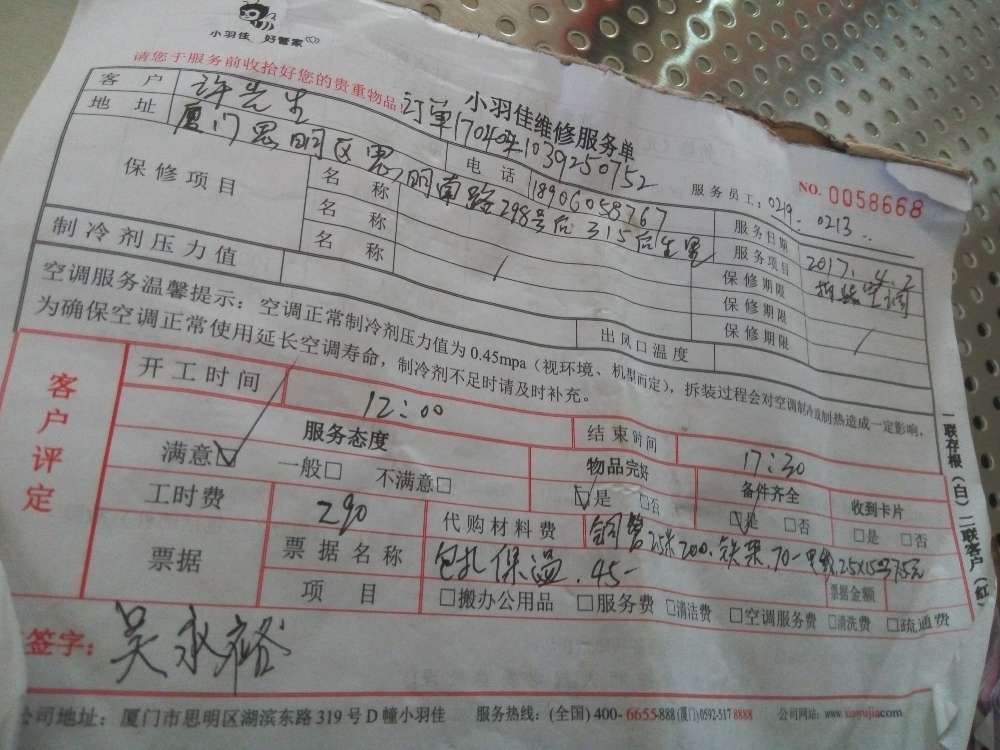 小羽佳 好管家
请您于服务前收拾好您的贵重物品
小羽佳维修服务单
订单1704041039250752
服务员工: 0219. 0213
NO. 0058668
客户 许先生 电话 18906058767 服务日期 2017.4.2
地址 厦门思明区思明南路298号后315后生里 服务项目 拆装空调
保修项目 名称 保修期限
名称 保修期限
名称 保修期限
制冷剂压力值 出风口温度
空调服务温馨提示: 空调正常制冷剂压力值为0.45mpa(视环境、机型而定), 拆装过程会对空调制冷或制热造成一定影响,
为确保空调正常使用延长空调寿命, 制冷剂不足时请及时补充。
客户评定
开工时间 12:00 结束时间 17:30
服务态度 物品完好 备件齐全 收到卡片
满意☑ 一般□ 不满意□ ☑是 □否 ☑是 □否 □是 □否
工时费 290 代购材料费 铜管2.5米200. 铁架.70-电线2.5X15=37.5元
包扎保温.45-
票据 票据名称 票据金额
项目 □搬办公用品 □服务费 □清洁费 □空调服务费 □清洗费 □疏通费
签字: 吴永裕
公司地址: 厦门市思明区湖滨东路319号D幢小羽佳 服务热线: (全国) 400-6655-888 (厦门) 0592-517 8888 公司网站: www.xiaoyujia.com
一联存根(白) 二联客户(红)